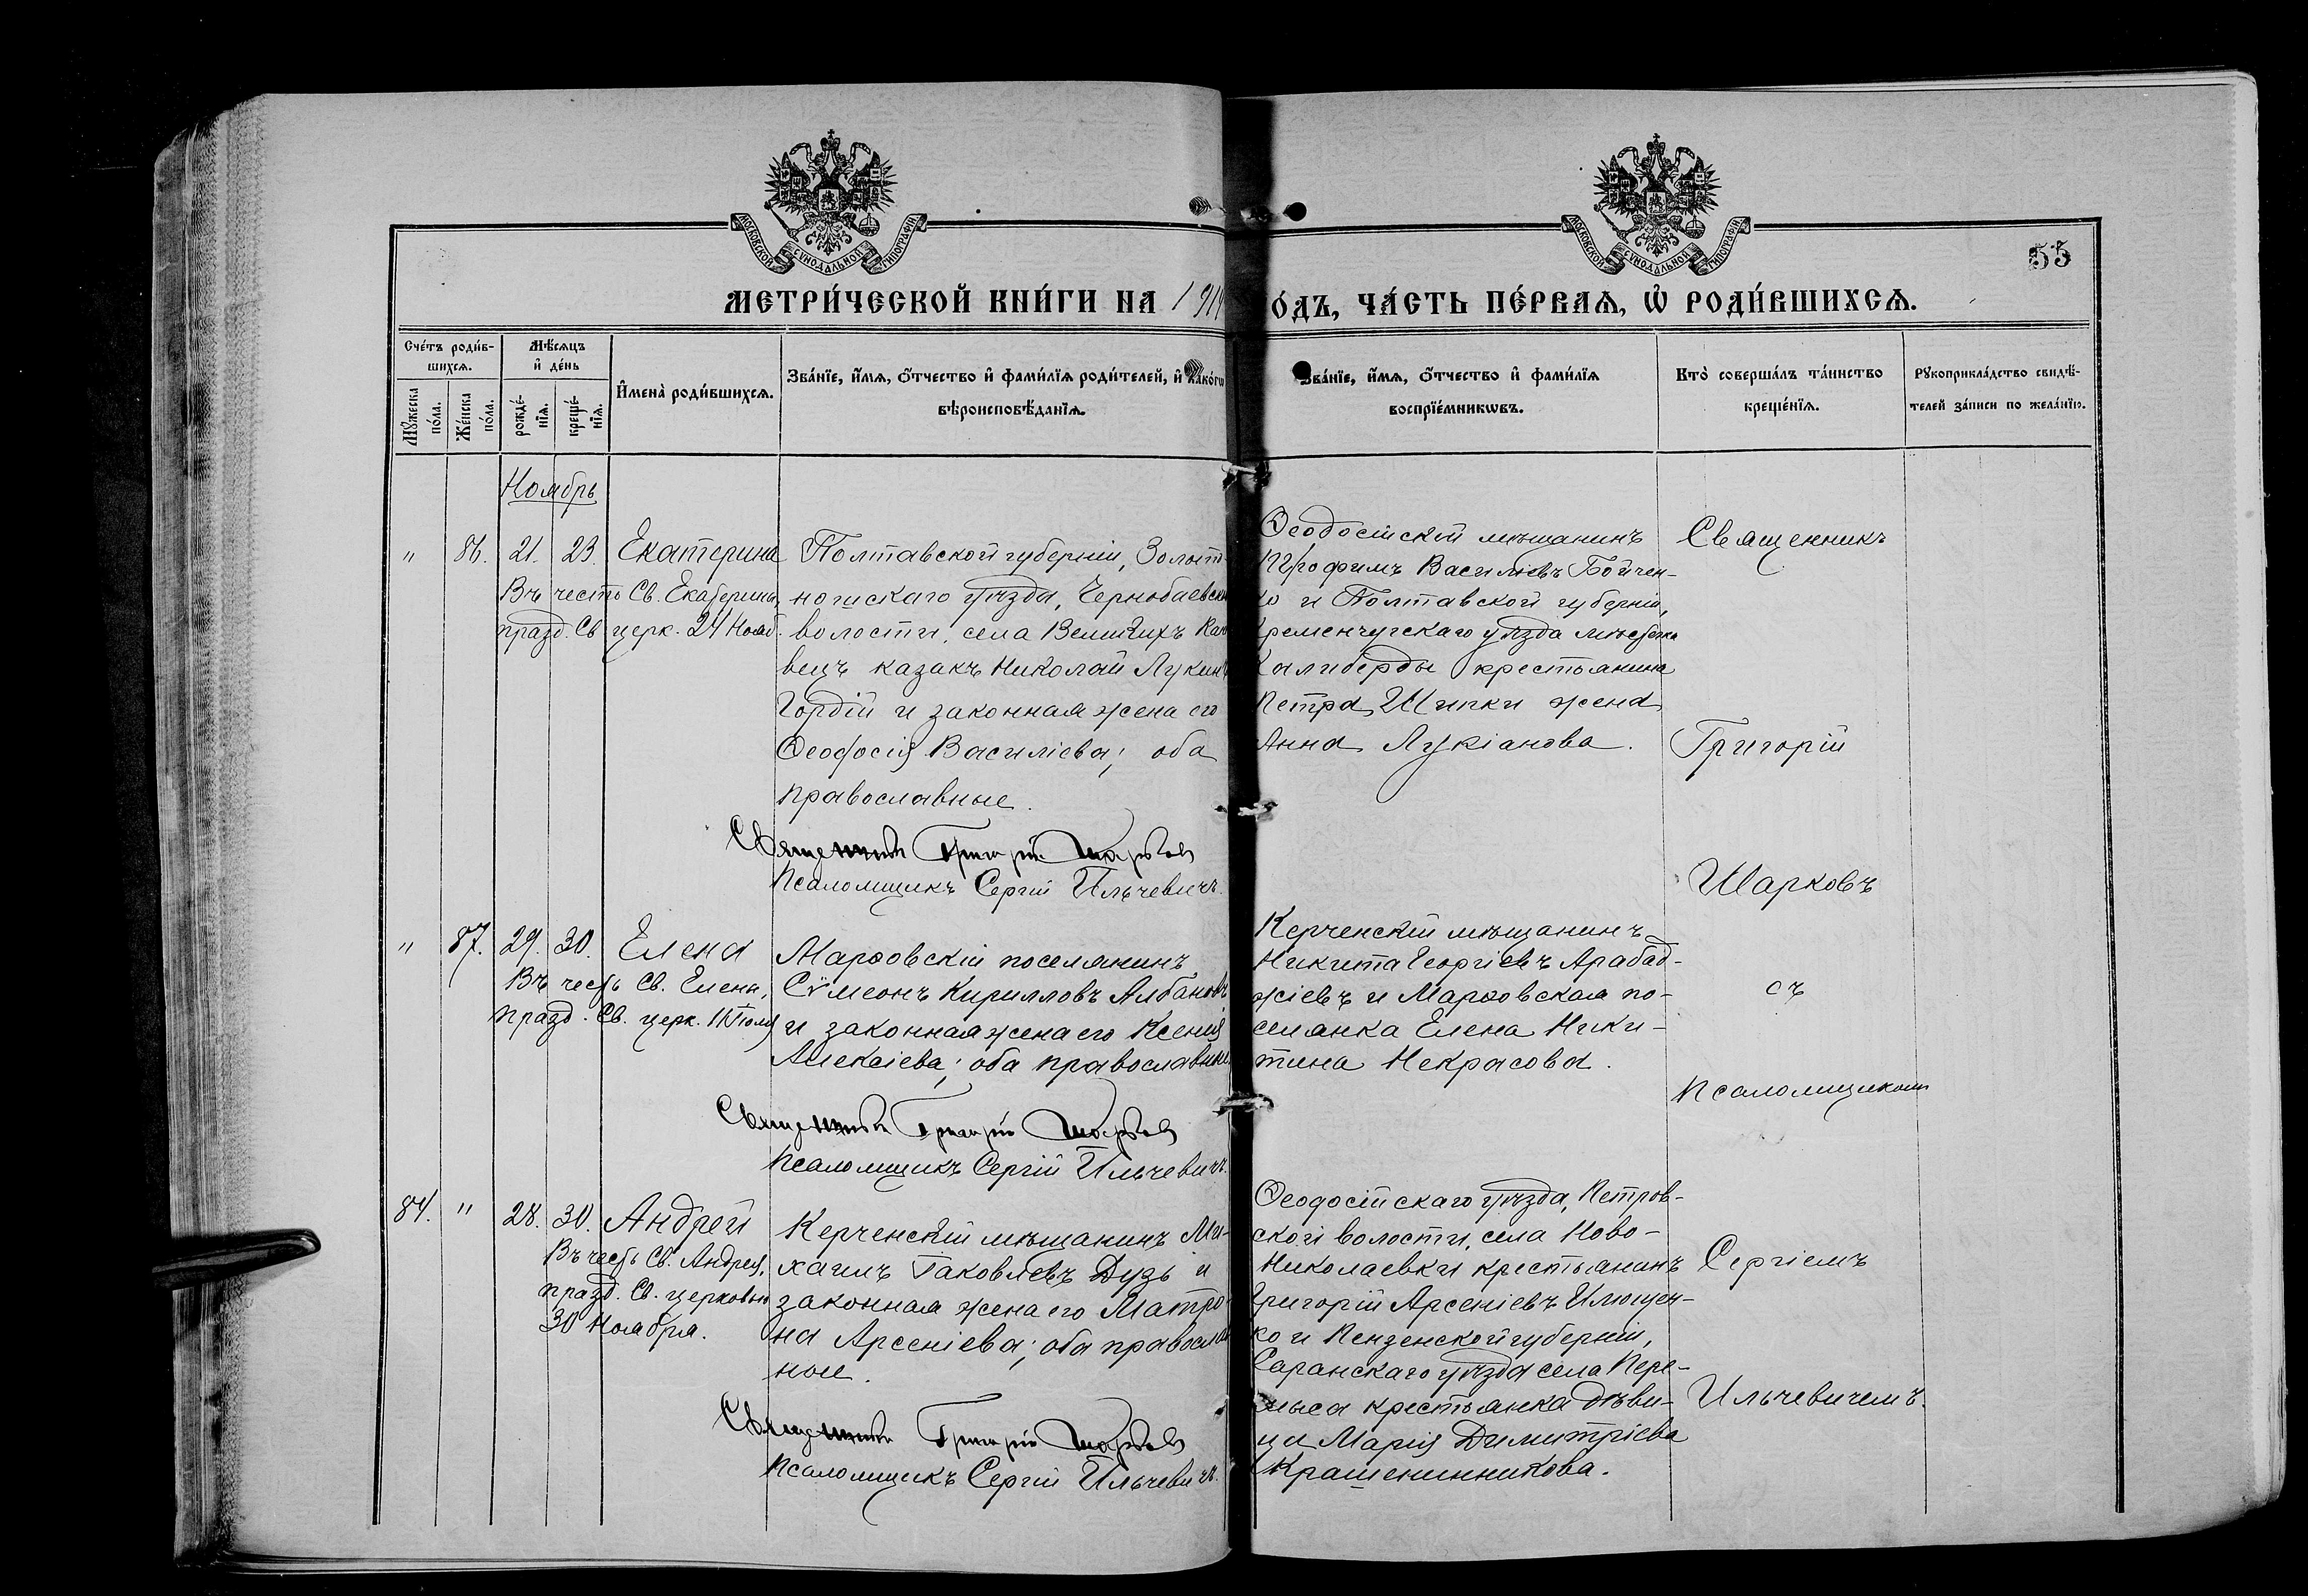 МОСКОВСКОЙ СѴНОДАЛЬНОЙ ТИПОГРАФІИ
МОСКОВСКОЙ СѴНОДАЛЬНОЙ ТИПОГРАФІИ
55
МЕТРИ́ЧЕСКОЙ КНИ́ГИ НА 1914
О́ДЪ, ЧА́СТЬ ПЕ́РВАЯ, Ѡ҆ РОДИ́ВШИХСЯ.
Сче́тъ роди́в-
шихся.
Мѣ́сяцъ
и҆ де́нь
Мꙋ́жеска по́ла.
Же́нска по́ла.
рожде́-
нїя.
креще́-
нїя.
И҆мена̀ роди́вшихся.
Зва́нїе, и҆́мя, ѻ҆́тчество и҆ фами́лїя роди́телей, и҆ како́гѡ
вѣроисповѣ́данїя.
Зва́нїе, и҆́мя, ѻ҆́тчество и҆ фами́лїя
воспрїе́мникѡвъ.
Кто̀ соверша́лъ та́инство
креще́нїя.
Рꙋкоприкла́дство свидѣ́-
телей за́писи по жела́нїю.
Ноябрь
" 86. 21. 23. Екатерина
Въ честь Св. Екатерины,
празд. Св. церк. 24 Нояб.
Полтавской губерніи, Золото
ношскаго уѣзда, Чернобаевской
волости, села Великихъ Кане
вецъ казакъ Николай Лукинъ
Гордій и законная жена его
Ѳеодосія Василіева; оба
православные.
Священникъ Григорій Шарковъ
Псаломщикъ Сергій Ильчевичъ.
Ѳеодосійскій мѣщанинъ
Трофимъ Василіевъ Бойчен-
ко и Полтавской губерніи,
Кременчугскаго уѣзда мѣстечка
Келиберды крестьянина
Петра Шипки жена
Анна Лукіанова.
Священникъ
Григорій
Шарковъ
съ
Псаломщикомъ
Сергіемъ
Ильчевичемъ.
" 87. 29. 30. Елена
Въ честь Св. Елены,
празд. Св. церк. 11 Іюля
Марѳовскій поселянинъ
Сѵмеонъ Кирилловъ Албановъ
и законная жена его Ксенія
Алексіева; оба православные
Священникъ Григорій Шарковъ
Псаломщикъ Сергій Ильчевичъ.
Керченскій мѣщанинъ
Никита Георгіевъ Арабад-
жіевъ и Марѳовская по-
селянка Елена Ники-
тина Некрасова.
84. " 28. 30. Андрей
Въ честь Св. Андрея,
празд. Св. церковью
30 Ноября.
Керченскій мѣщанинъ Ми-
хаилъ Іаковлевъ Дузь и
законная жена его Матро-
на Арсеніева; оба православ
ные.
Священникъ Григорій Шарковъ
Псаломщикъ Сергій Ильчевичъ.
Ѳеодосійскаго уѣзда, Петров-
ской волости, села Ново-
Николаевки крестьянинъ
Григорій Арсеніевъ Илющен-
ко и Пензенской губерніи,
Саранскаго уѣзда села Пере-
мыса крестьянка дѣви-
ца Марія Димитріева
Крашенинникова.